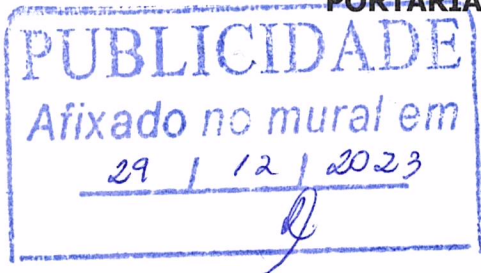 PORTARIA
PUBLICIDADE
Afixado no mural em
29 / 12 / 2023